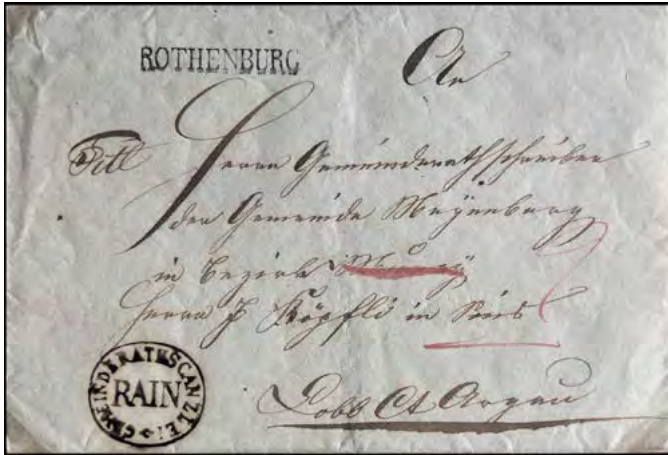 ROTHENBURG
An
Titl Herrn Gemeinderathschreiber
der Gemeinde Meyenberg
in Bezirk Mury
Herrn J Köpfli in Sins
Lobl Ct Argau
GEMEINDERATHSCANZLEI
RAIN